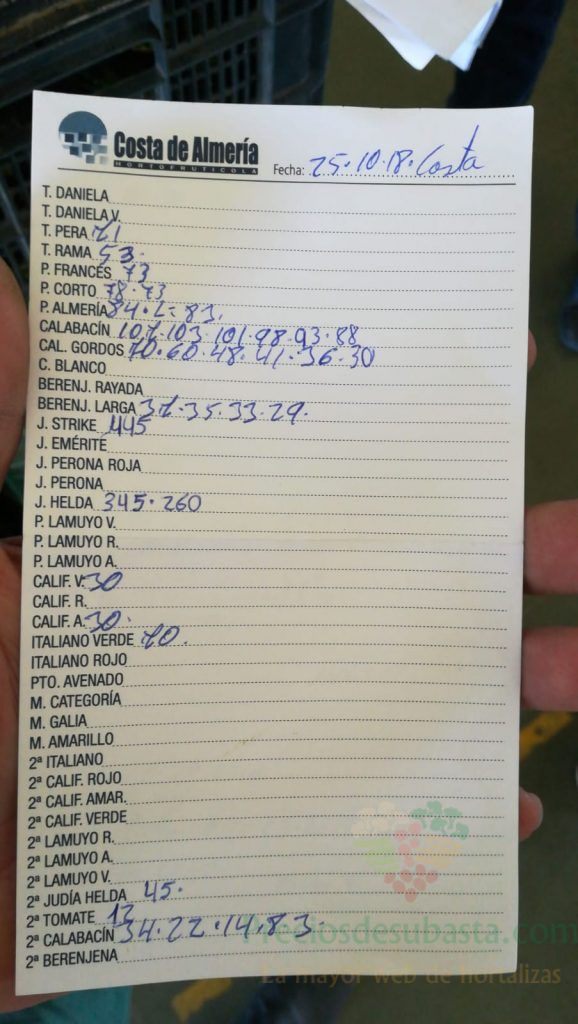 Costa de Almería
HORTOFRUTÍCOLA
Fecha: 25.10.18. Costa
T. DANIELA
T. DANIELA V.
T. PERA 71
T. RAMA 53.
P. FRANCÉS 73
P. CORTO 78.73
P. ALMERÍA 84.L-83.
CALABACÍN 107.103.101.98.93.88
CAL. GORDOS 70.60.48.41.36.30
C. BLANCO
BERENJ. RAYADA
BERENJ. LARGA 37.35.33.29.
J. STRIKE 445
J. EMÉRITE
J. PERONA ROJA
J. PERONA
J. HELDA 345.260
P. LAMUYO V.
P. LAMUYO R.
P. LAMUYO A.
CALIF. V. 30
CALIF. R.
CALIF. A. 30.
ITALIANO VERDE 70.
ITALIANO ROJO
PTO. AVENADO
M. CATEGORÍA
M. GALIA
M. AMARILLO
2ª ITALIANO
2ª CALIF. ROJO
2ª CALIF. AMAR.
2ª CALIF. VERDE
2ª LAMUYO R.
2ª LAMUYO A.
2ª LAMUYO V.
2ª JUDÍA HELDA 45.
2ª TOMATE 12
2ª CALABACÍN 34.22.14.8.3.
2ª BERENJENA
Preciosdesubasta.com
La mayor web de hortalizas